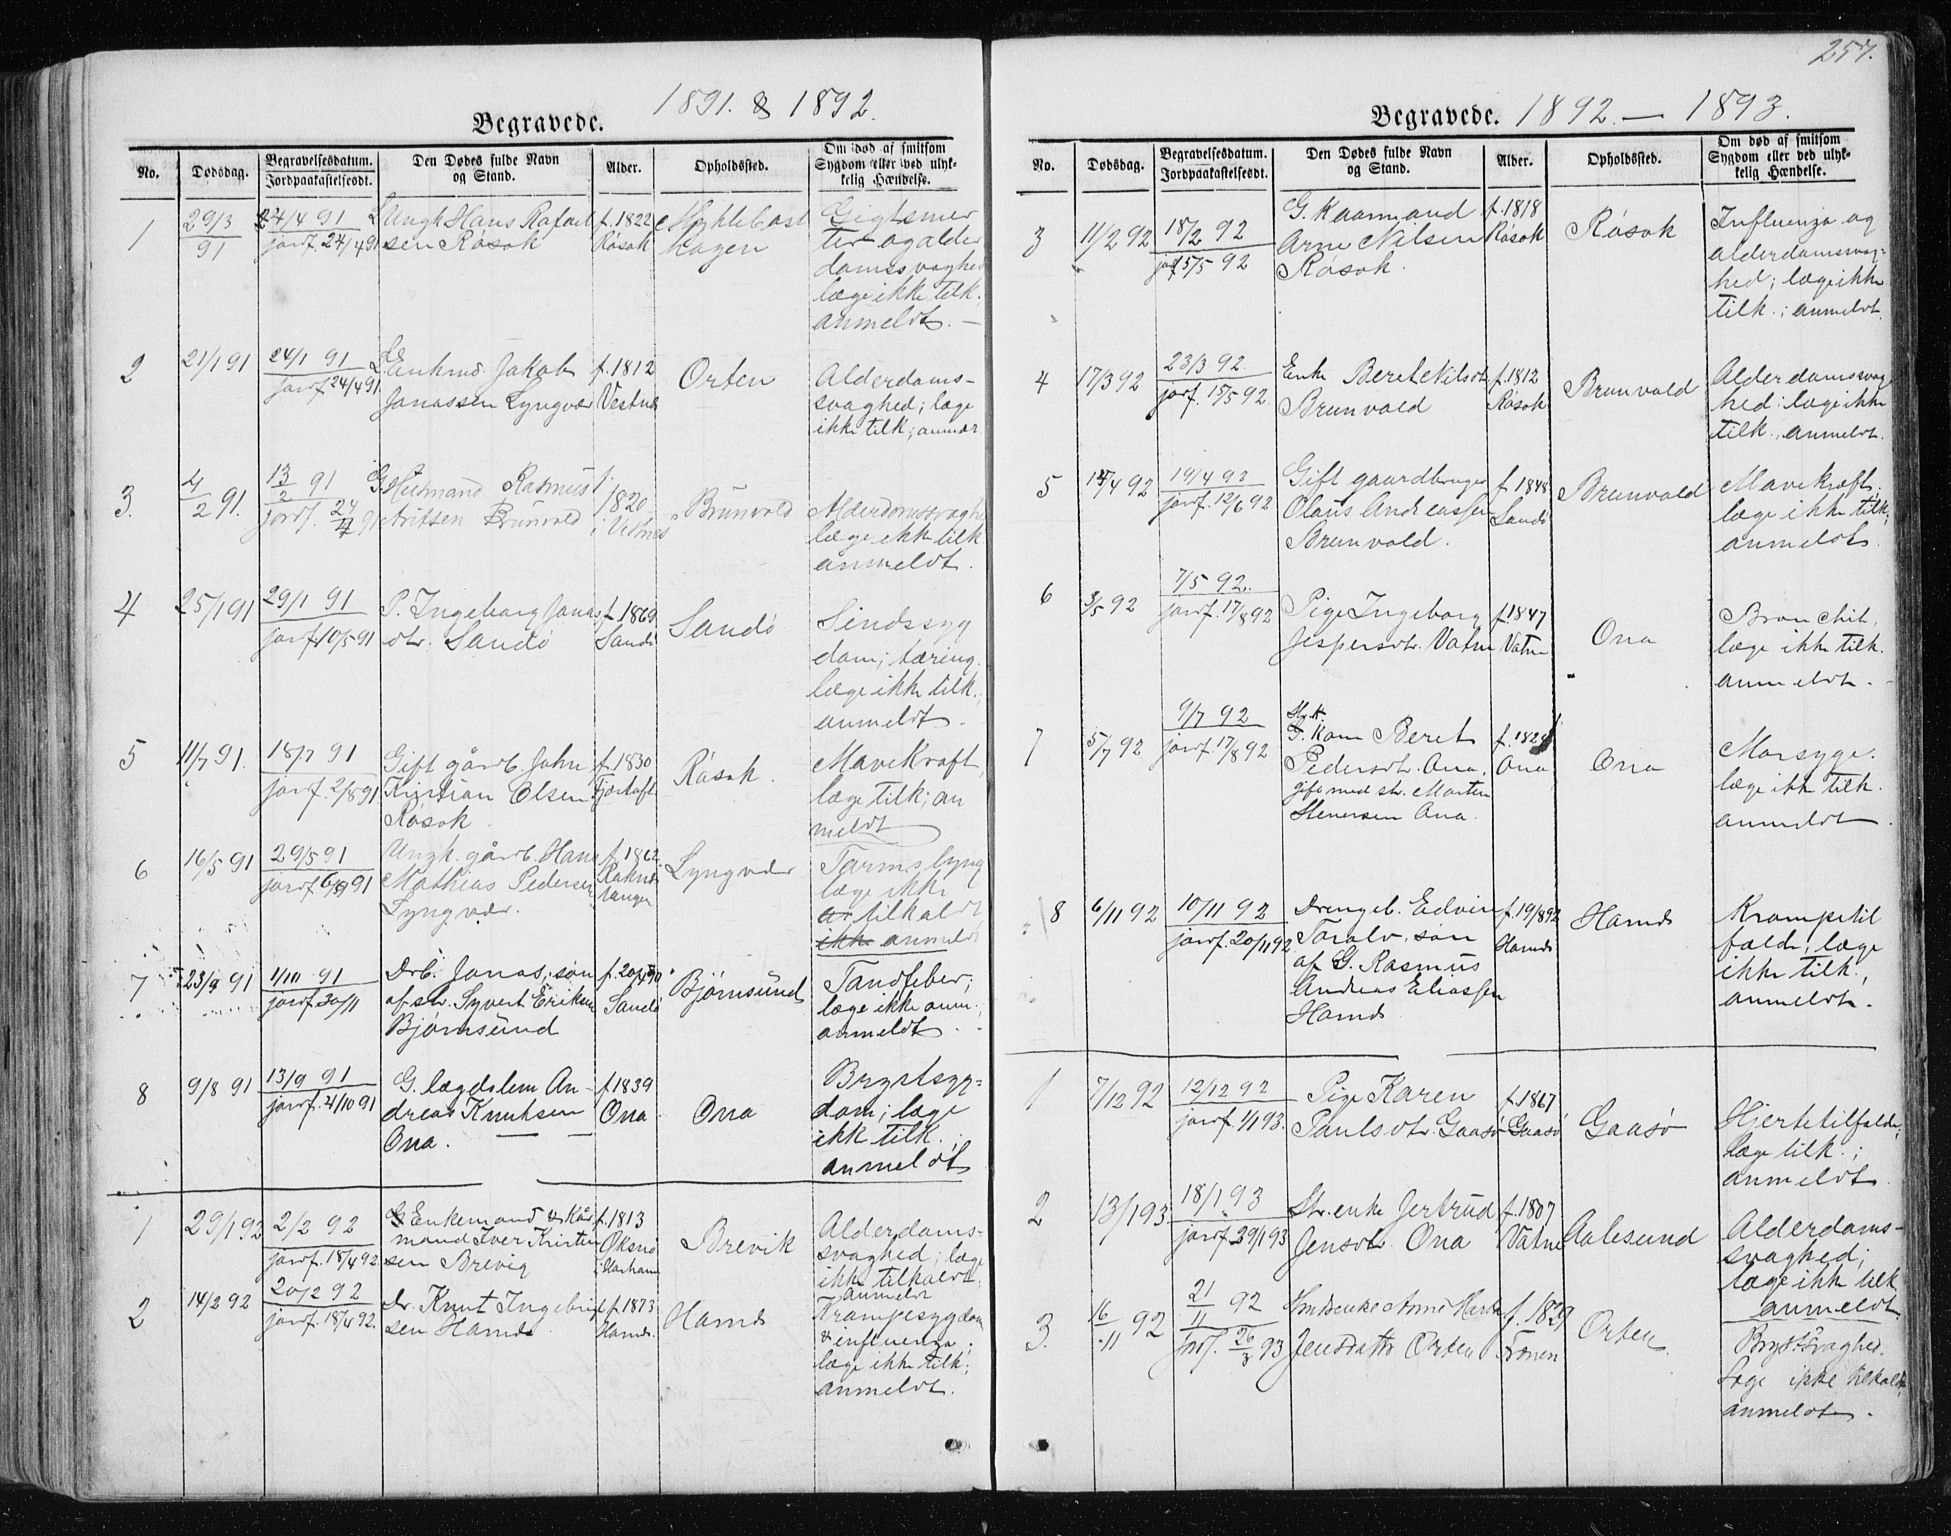 257.
Begravede. 1891. & 1892.
No. Dødsdag. Begravelsesdatum. Jordpaakastelsesdt. Den Dødes fulde Navn og Stand. Alder. Opholdssted. Om død af smitsom Sygdom eller ved ulykkelig Hændelse.
1
29/3 91
24/4 91
jordf. 24/4 91
Ungk Hans Rafael
sen Røsok
f. 1822
Røsok
Myklebost
hagen
Gigtsmer
ter og alder
domssvaghed
læge ikke tilk.
anmeldt. —
2
21/1 91
24/1 91
jordf 24/4 91
Enkmd. Jakob
Janassen Lyngvær
f. 1812
Vestnes
Orten
Alderdoms-
svaghed; læge
ikke tilk;
3.
4/2 91.
13/2 91
jordf. 24/4 91
G. Husmand Rasmus
Brunvold
f. 1820
i Vestnes
Brunvold
Alderdomssvaghed
læge ikke tilk
anmeldt.
4
25/1 91
29/1 91
jordf 10/5 91
P. Ingeborg Jonas
dtr. Sandø
f. 1869
Sandø
Sandø
Sindssyg
dom; tæring.
læge ikke tilk.
anmeldt.
5
11/7 91.
18/7 91
jordf. 2/8 91
Gift gårdb. John
Kristian Olsen
Røsok
f. 1830
Fjørtoft
Røsok.
Mavekræft,
læge tilk; an
meldt
6
16/5 91
29/5 91
jordf 91
Ungk. gårdb. Hans
Mathias Pedersen
Lyngvær.
f. 1862.
Lyngvær
læge ikke
tilkaldt
ikke anmeldt
7
23/9 91
1/10 91
jordf. 30/11
Drb. Jonas, søn
af str. Syvert Eriksen
Bjørnsund
f. 20/4 90
Sandø
Bjørnsund
Tandfeber;
læge ikke anm.
anmeldt.
8
9/8 91
13/9 91
jordf. 4/10 91
G. lægdslem An-
dreas Knutsen
Ona. — —
f 1839
Ona
Ona
Brystsyg-
dom; læge
ikk tilk.
anmeldt
1
29/1 92
2/2 92
jordf. 18/4 92
Enkemand & Kår
mand Iver Kristen
sen Brevig
f. 1813
Oksnø
i Harham
Brevik
Alderdoms-
svaghed; læge
ikke tilkaldt.
anmeldt
2
14/2 92
20/2 92
jordf. 18/4 92.
Dr. Knut Ingebrigt
sen Hamds
f. 1873
Hamds.
Hamds
Krampesygdom
& influenza;
læge ikke tilk;
anmeldt.
Begravede. 1892. — 1893.
No. Dødsdag. Begravelsesdatum. Jordpaakastelsesdt. Den Dødes fulde Navn og Stand. Alder. Opholdssted. Om død af smitsom Sygdom eller ved ulykkelig Hændelse.
3
11/2 92
18/2 92
jdf 15/5 92
G. Kaarmand
Arne Nilsen
Røsok.
f. 1818
Røsok
Røsok
Influenza og
alderdomssvag-
hed; læge ikke
tilk.; anmeldt.
4
17/3 92
23/3 92.
jordf. 15/5 92.
Enke Beret Nilsdt.
Brunvold
f. 1812
Røsok
Brunvold
Alderdomssvag
hed; læge ikke
tilk., anmeldt.
5
14/4 92
19/4 92
jordf. 12/6 92
Gift gaardbruger
Olaus Andreassen
Brunvold.
f 1848
Sandø
Brunvold
Mavekræft.
læge ikke tilk;
anmeldt.
6
3/5 92
7/5 92.
jordf. 17/8 92
Pige Ingeborg
Jespersdtr. Vatne
f. 1847
Vatne
Ona
Bronchit,
læge ikke tilk.
anmeldt. -
7
5/7 92
9/7 92
jordf. 17/8 92
G. Kone Beret
Pedersdtr. Ona,
gift med str. Morten
Stenersen Ona.
f. 1828
Ona
Ona
Morsyge.
læge ikk tilk.
anmeldt.
8
6/11 92
10/11 92
jordf. 20/11 92
Drengeb. Edvin
Toralv, søn
af G. Rasmus
Andreas Eliassen
Hamds
f. 19/8 92
Hamds
Hamds
Krampetil
fælde, læge
ikke tilk.,
anmeldt.
1
7/12 92
12/12 92
jordf. 1/1 93.
Pige Karen
Paulsdtr. Gaasø
f. 1867
Gaasø
Gaasø
Hjertetilfælde,
læge tilk.;
anmeldt.
2
13/1 93
18/1 93
jordf 29/1 93
Str. enke Jertrud
Jensdt. Ona
f. 1807
Vatne
Aalesund
Alderdoms-
svaghed;
læge ikk tilk
anmeldt.
3.
16/11 92
21/11 92
jordf. 26/3 93
Hmdsenke Anne
Jensdatter Orten
f. 1829
Orten.
Brystsvaghed.
Læge ikke tilkaldt,
anmeldt.